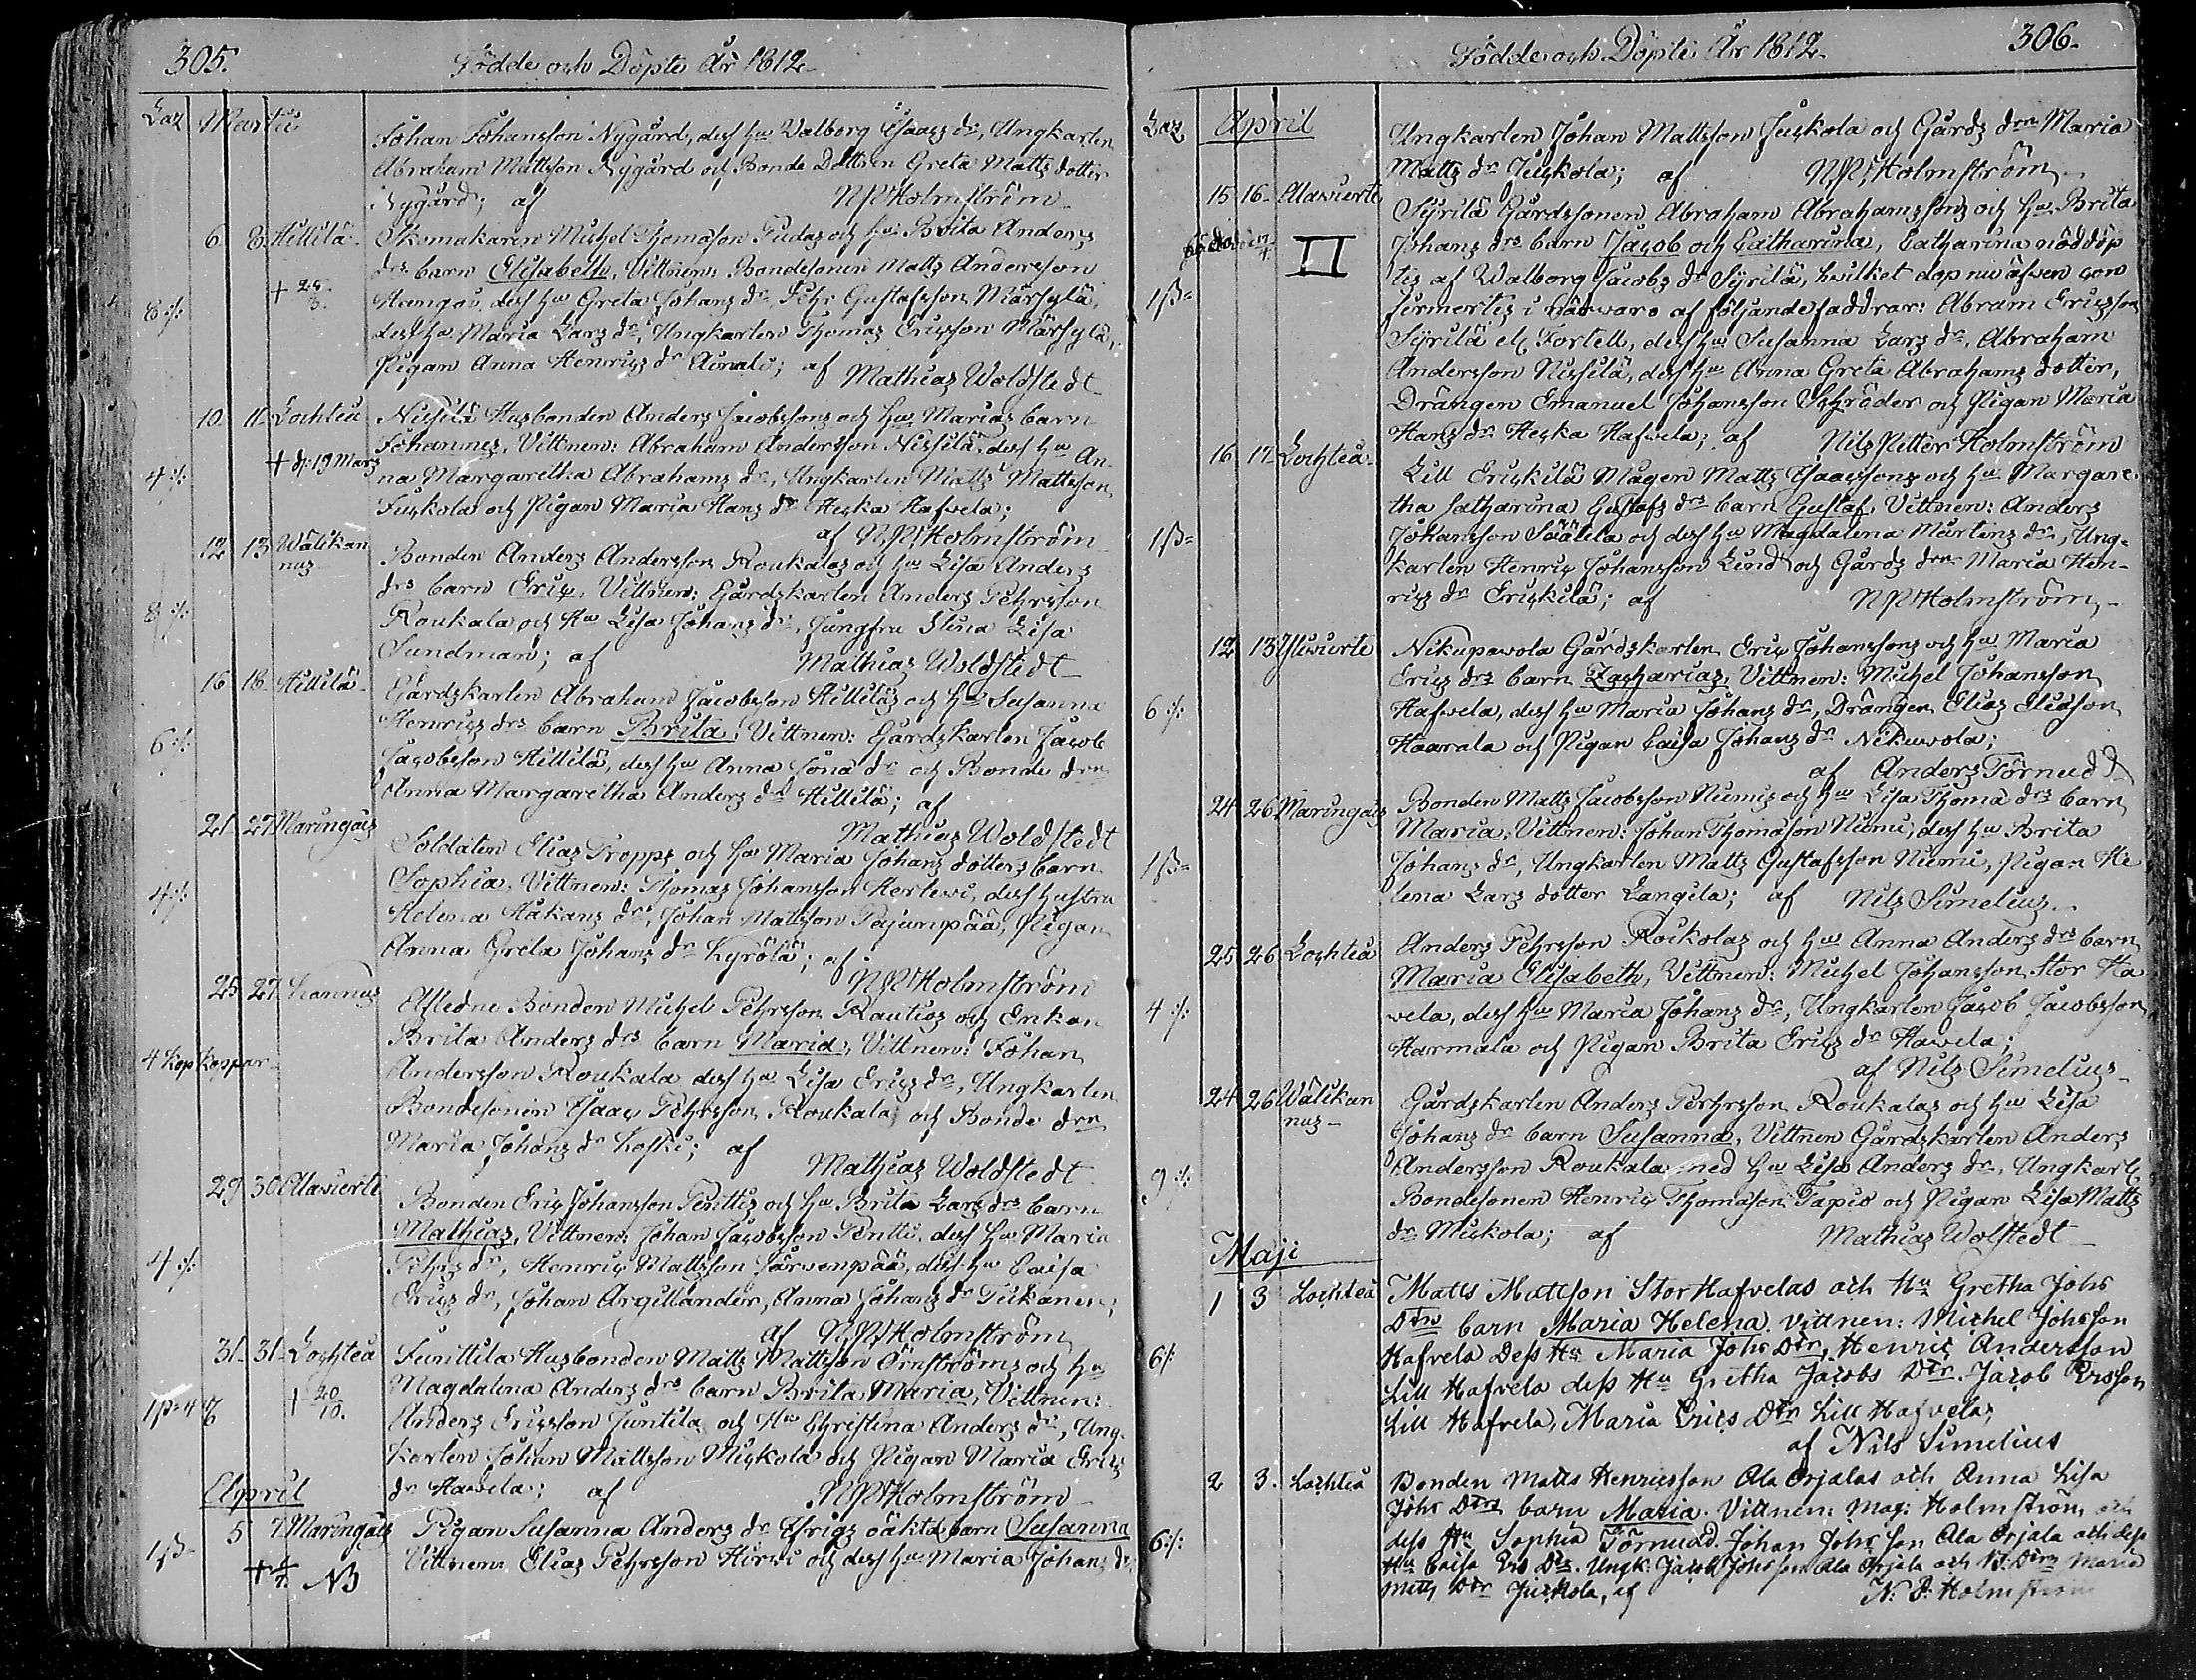 305.
Födde och Döpte År 1812
Laz Martii
Johan Johansson Nygård, dess hu Walborg Isaacs dr, Ungkarlen
Abraham Mattsson Nygård och Bonde Dottren Greta Matts dotter
Nygård; af NP Holmström
6. 8. Hillilä. Skomakaren Michel Thomasson Pudas och hu Brita Anders
drs barn Elisabeth, Vittnen: Bondesonen Matts Andersson
8 :/: + 25/3. dess hu Greta Johans dr, Pehr Gustafsson Märsylä,
dess hu Maria Lars dr, Ungkarlen Thomas Ericsson Märsylä,
Pigan Anna Henrics dr; af Mathias Woldstedt
10. 11. Lochteå Nissilä Husbonden Anders Jacobssons och hu Marias barn
Johannes, Vittnen: Abraham Andersson Nissilä, dess hu An-
4 :/: + d. 19 Mars na Margaretha Abrahams dr, Ungkarlen Matts Mattsson
Juckola och Pigan Maria Hans dr Hecka Hafvela;
af NP Holmström
12 13 Wälikannus Bonden Anders Andersson Roukalas och hu Lisa Anders
drs barn Eric, Vittnen: Gårdskarlen Anders Pehrsson
8 :/: Roukala och Hu Lisa Johans dr, Jungfru Stina Lisa
Sundman; af Mathias Woldstedt
16 18 Hillilä Gårdskarlen Abraham Jacobsson Hilliläs och hu Susanna
Henrics drs barn Brita, Vittnen: Gårdskarlen Jacob
6 :/: Jacobsson Hillilä, dess hu Anna Jona dr och Bonde drn
Anna Margaretha Anders dr Hillilä; af
Mathias Woldstedt
21 27 Maringais Soldaten Elias Tropps och hu Maria Johans dotters barn
Sophia, Vittnen: Thomas Johansson Kerlewi, dess hustru
4 :/: Helena Håkans dr, Johan Mattsson Pajunpää, Pigan
Anna Greta Johans dr Kyrölä; af
NP Holmström
25 27 Kannus Afledne Bonden Michel Pehrsson Rautios och Enkan
Brita Anders drs barn Maria, Vittnen: Johan
4 Kop kappar Andersson Roukala dess hu Lisa Erics dr, Ungkarlen
Bondesonen Isaac Pehrsson Roukala och Bonde drn
Maria Johans dr Koski; af Mathias Woldstedt
29 30 Alawierte Bonden Eric Johansson Penttis och hu Brita Lars drs barn
Mathias, Vittnen: Johan Jacobsson Pentti, dess hu Maria
4 :/: Pehrs dr, Henric Mattsson Järwenpää, dess hu Caisa
Erics dr, Johan Argillander, Anna Johans dr Tiikanen;
af NP Holmström
31 31 Lochteå Junttila Husbonden Matts Mattsson Örnströms och hu
+ 20/10. Magdalena Anders drs barn Brita Maria, Vittnen:
Anders Ericsson Juntila och Hu Christina Anders dr, Ung-
karlen Johan Mattsson Mickola och Pigan Maria Erics
April dr Hawela; af NP Holmström
5 7 Maringais Pigan Susanna Anders dr Isrigs oäkta barn Susanna
NB Vittnen: Elias Pehrsson Hirwi och dess hu Maria Johans dr
306.
Födde och Döpte År 1812
Laz April
Ungkarlen Johan Mattsson Juckola och Gårds drn Maria
Matts dr Juckola; af NP Holmström
15 16 Alawierte Syrilä Gårdssonen Abraham Abrahamssons och hu Brita
II Johans drs barn Jacob och Catharina, Catharina nöddöp
1 ß tes af Walborg Jacobs dr Syrilä, hwilket dop nu äfwen con
firmertes i närwaro af följande faddrar: Abram Ericsson
Syrilä el. Fortell, dess hu Susanna Lars dr, Abraham
Andersson Nissilä, dess hu Anna Greta Abrahams dotter,
Drängen Emanuel Johansson Schröder och Pigan Maria
Hans dr Hecka Hafvela; af Nils Petter Holmström
16 17 Lochteå Lill Erickilä Mågen Matts Isaacssons och hu Margare-
tha Catharina Gustafs drs barn Gustaf, Vittnen: Anders
1 ß Johansson Säätelä och dess hu Magdalena Mårtens dr, Ung-
karlen Henric Johansson Lind och Gårds drn Maria Hen-
rics dr Erickilä; af NP Holmström
12 13 Yliwierte Nikupawola Gårdskarlen Eric Johanssons och hu Maria
Erics drs barn Zacharias, Vittnen: Michel Johansson
6 :/: Hafvela, dess hu Maria Johans dr, Drängen Elias Eliasson
Haarala och Pigan Caisa Johans dr Nikuwola;
af Anders Törnudd
24 26 Maringais Bonden Matts Jacobsson Niemis och hu Lisa Thomæ drs barn
Maria, Vittnen: Johan Thomasson Niemi, dess hu Brita
1 ß Johans dr, Ungkarlen Matts Gustafsson Niemi, Pigan He
lena Lars dotter Långila; af Nils Simelius
25 26 Lochteå Anders Pehrsson Roukolas och hu Anna Anders drs barn
Maria Elisabeth, Vittnen: Michel Johansson Stor Ha
4 :/: vela, dess hu Maria Johans dr, Ungkarlen Jacob Jacobsson
Harmala och Pigan Brita Erics dr Hawela;
af Nils Simelius
24 26 Wälikannus Gårdskarlen Anders Pehrsson Roukalas och hu Lisa
Johans dr barn Susanna, Vittnen Gårdskarlen Anders
9 :/: Andersson Roukala med hu Lisa Anders dr, Ungkarl
Bondesonen Henric Thomasson Tapio och Pigan Lisa Matts
dr Mickola; af Mathias Wolstedt
Maji
1 3 Lochteå Matts Mattson StorHafvelas och Hu Gretha Johs
Dtrs barn Maria Helena. Vittnen: Michel Johsson
6 :/: Hafvela Dess Hu Maria Johs Dtr, Henric Andersson
Lill Hafvela dess Hu Gretha Jacobs Dtr. Jacob Ersson
Lill Hafvela, Maria Erics Dtr Lill Hafvela;
af Nils Simelius
2 3. Lochteå Bonden Matts Henricsson Ala Orjalas och Anna Lisa
Johs Dtrs barn Maria. Vittnen: Mag: Holmström och
6 :/: dess Hu Sophia Törnudd. Johan Johsson Ala Orjala och dess
Hu Caisa Ers Dtr. Ungk: Jacob Johsson Ala Orjala och B: Dtrn Maria
Matts Dtr Juckola, af N. P. Holmström